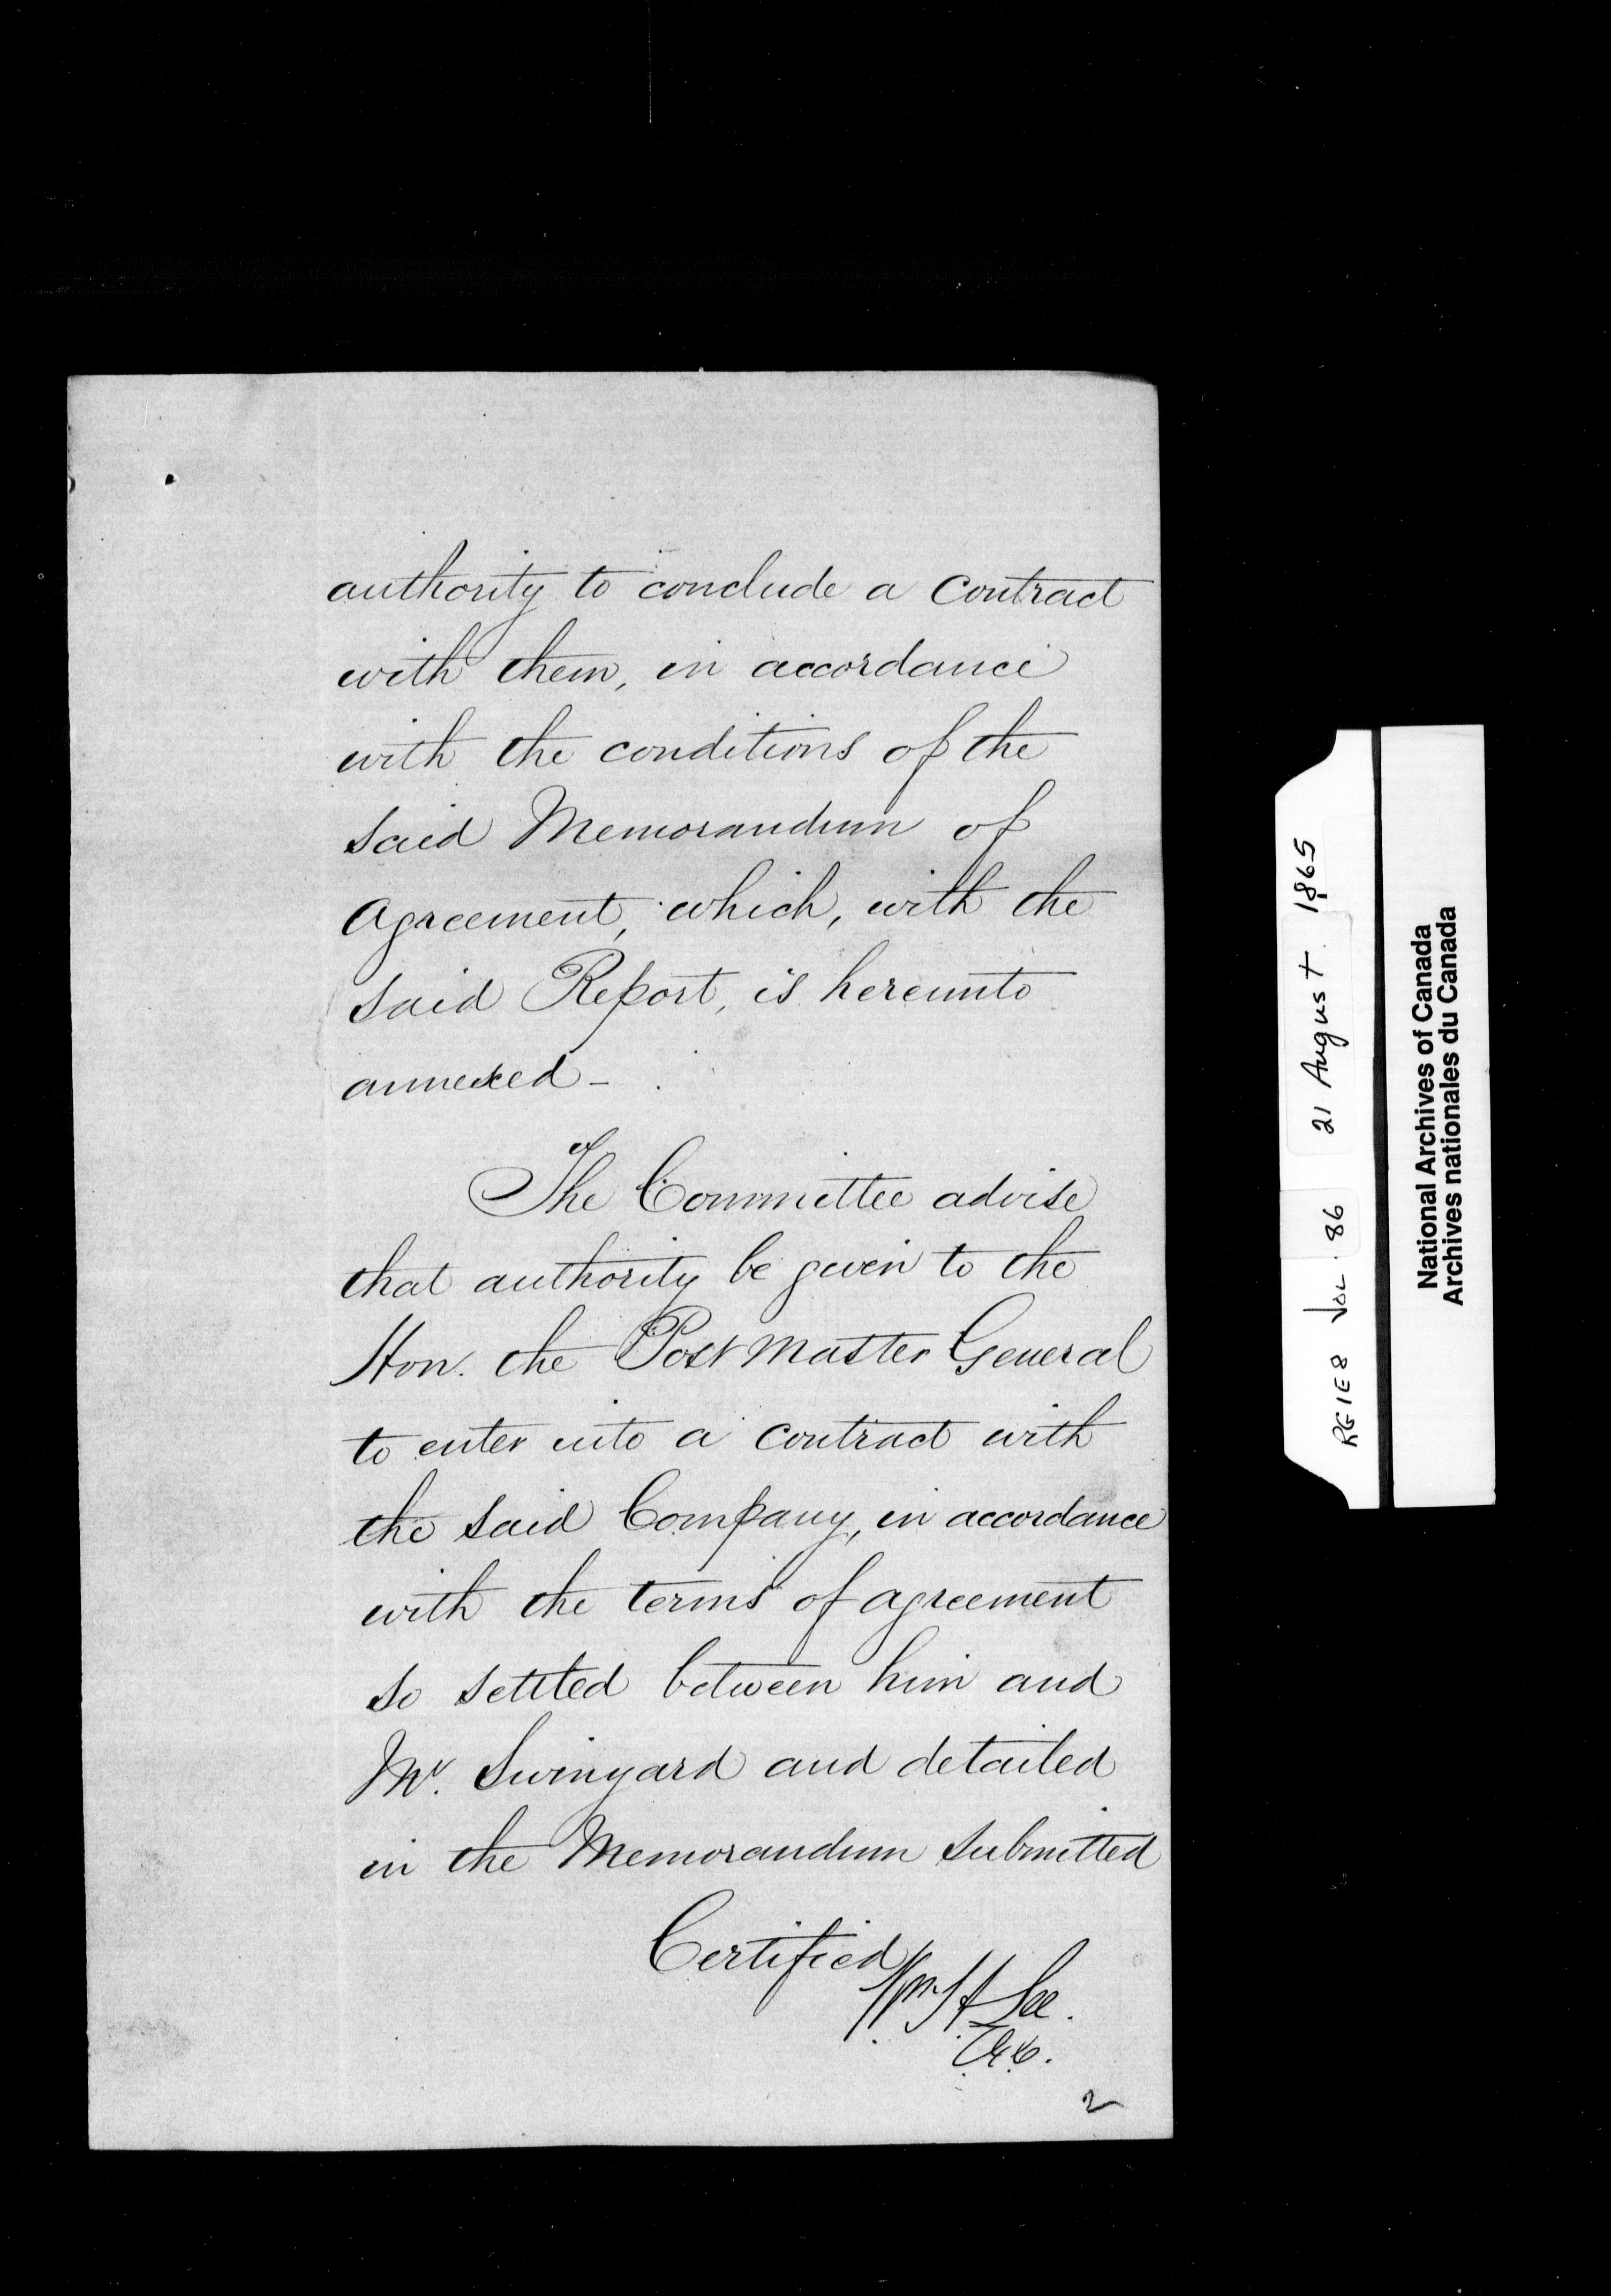 authority to conclude a Contract
with them, in accordance
with the conditions of the
said Memorandum of
Agreement, which, with the
said Report, is hereunto
annexed -
The Committee advise
that authority be given to the
Hon. the Post Master General
to enter into a contract with
the said Company, in accordance
with the terms of agreement
so settled between him and
Mr. Swinyard and detailed
in the Memorandum submitted
Certified
Wm H Lee.
C.E.C.
2
RG1E8 VOL. 86 21 August 1865
National Archives of Canada
Archives nationales du Canada